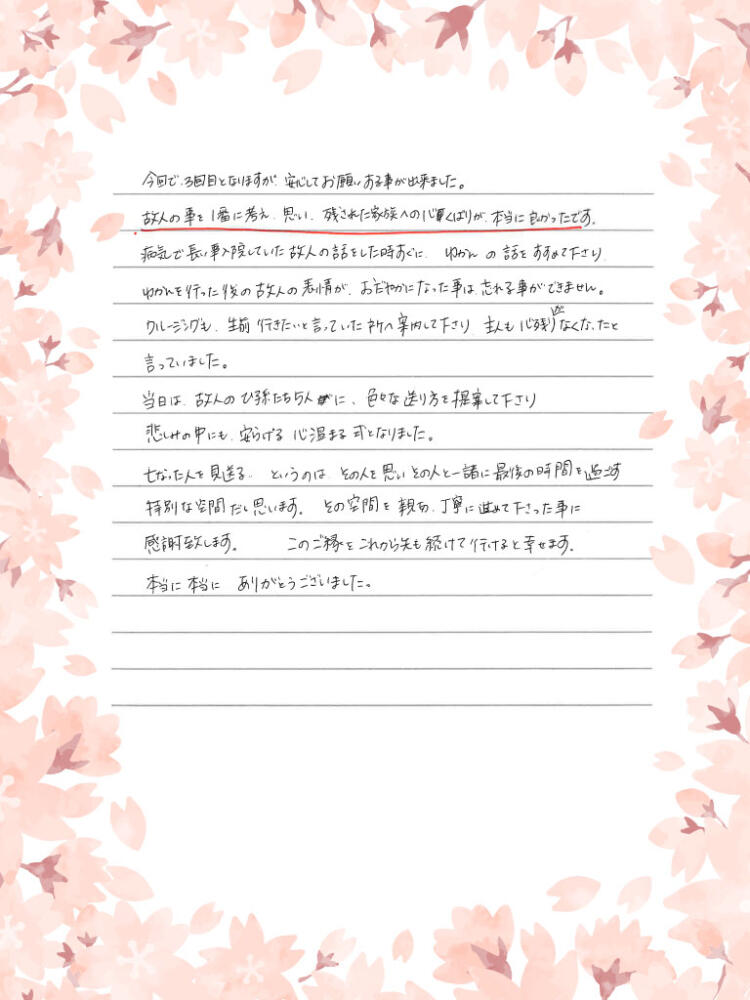 今回で、3回目となりますが、安心してお願いする事が出来ました。
故人の事を1番に考え、思い、残された家族への心くばりが、本当に良かったです。
病気で長い事入院していた故人の話をした時すぐに、ゆかんの話をすすめて下さり、
ゆかんを行った後の故人の表情が、おだやかになった事は、忘れる事ができません。
クルージングも、生前行きたいと言っていた所へ案内して下さり 主人も心残りなくなったと
言っていました。
当日は、故人のひ孫たち5人に、色々な送り方を提案して下さり
悲しみの中にも、安らげる 心温まる式となりました。
亡なった人を見送る… というのは、その人を思いその人と一諸に最後の時間を過ごす
特別な空間だし思います。 その空間を親切、丁寧に進めて下さった事に
感謝致します。 このご縁をこれから先も続けて行けると幸せます。
本当に本当に ありがとうございました。